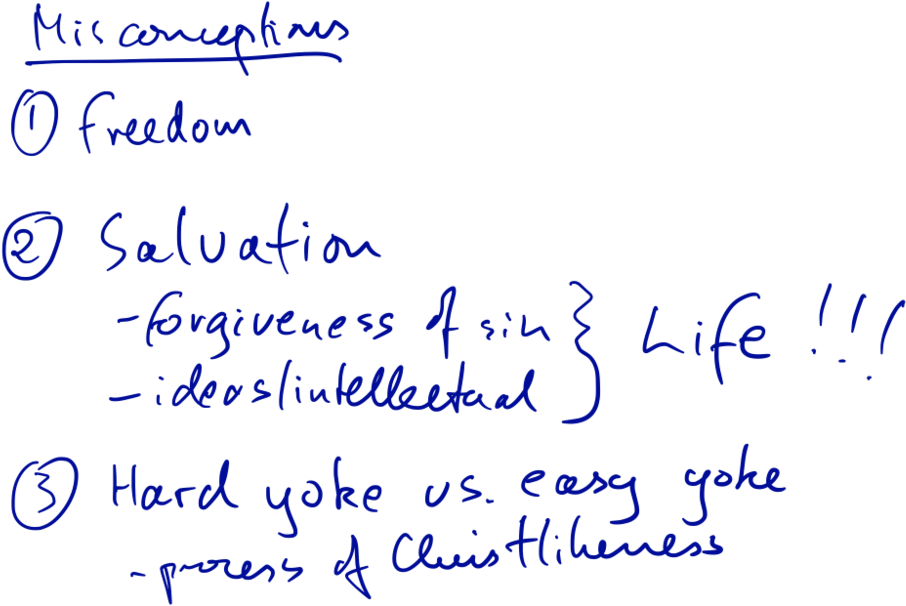 Misconceptions
① freedom
② Salvation
- forgiveness of sin } Life !!!
- ideas/intellectual
③ Hard yoke vs. easy yoke
- process of Christlikeness